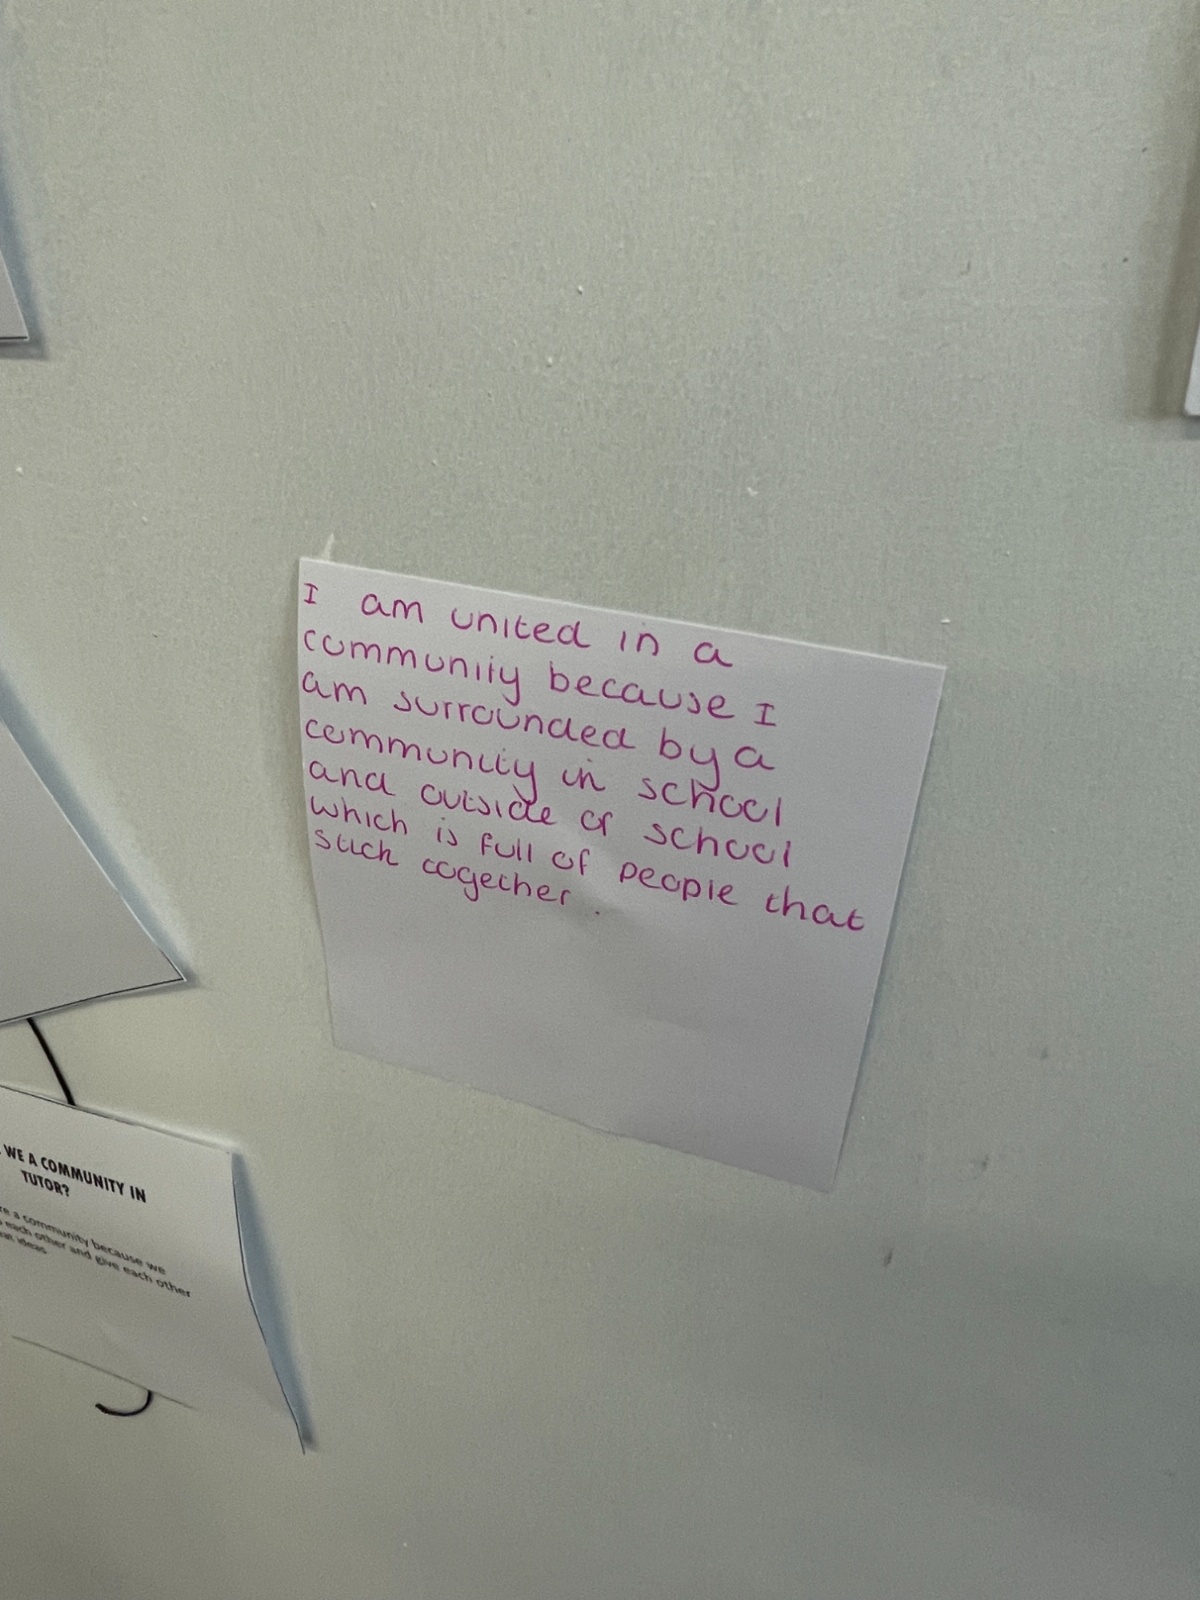 I am united in a
community because I
am surrounded by a
community in school
and outside of school
which is full of people that
stick together.
WE A COMMUNITY IN
TUTOR?
a community because we
each other and give each other
ideas